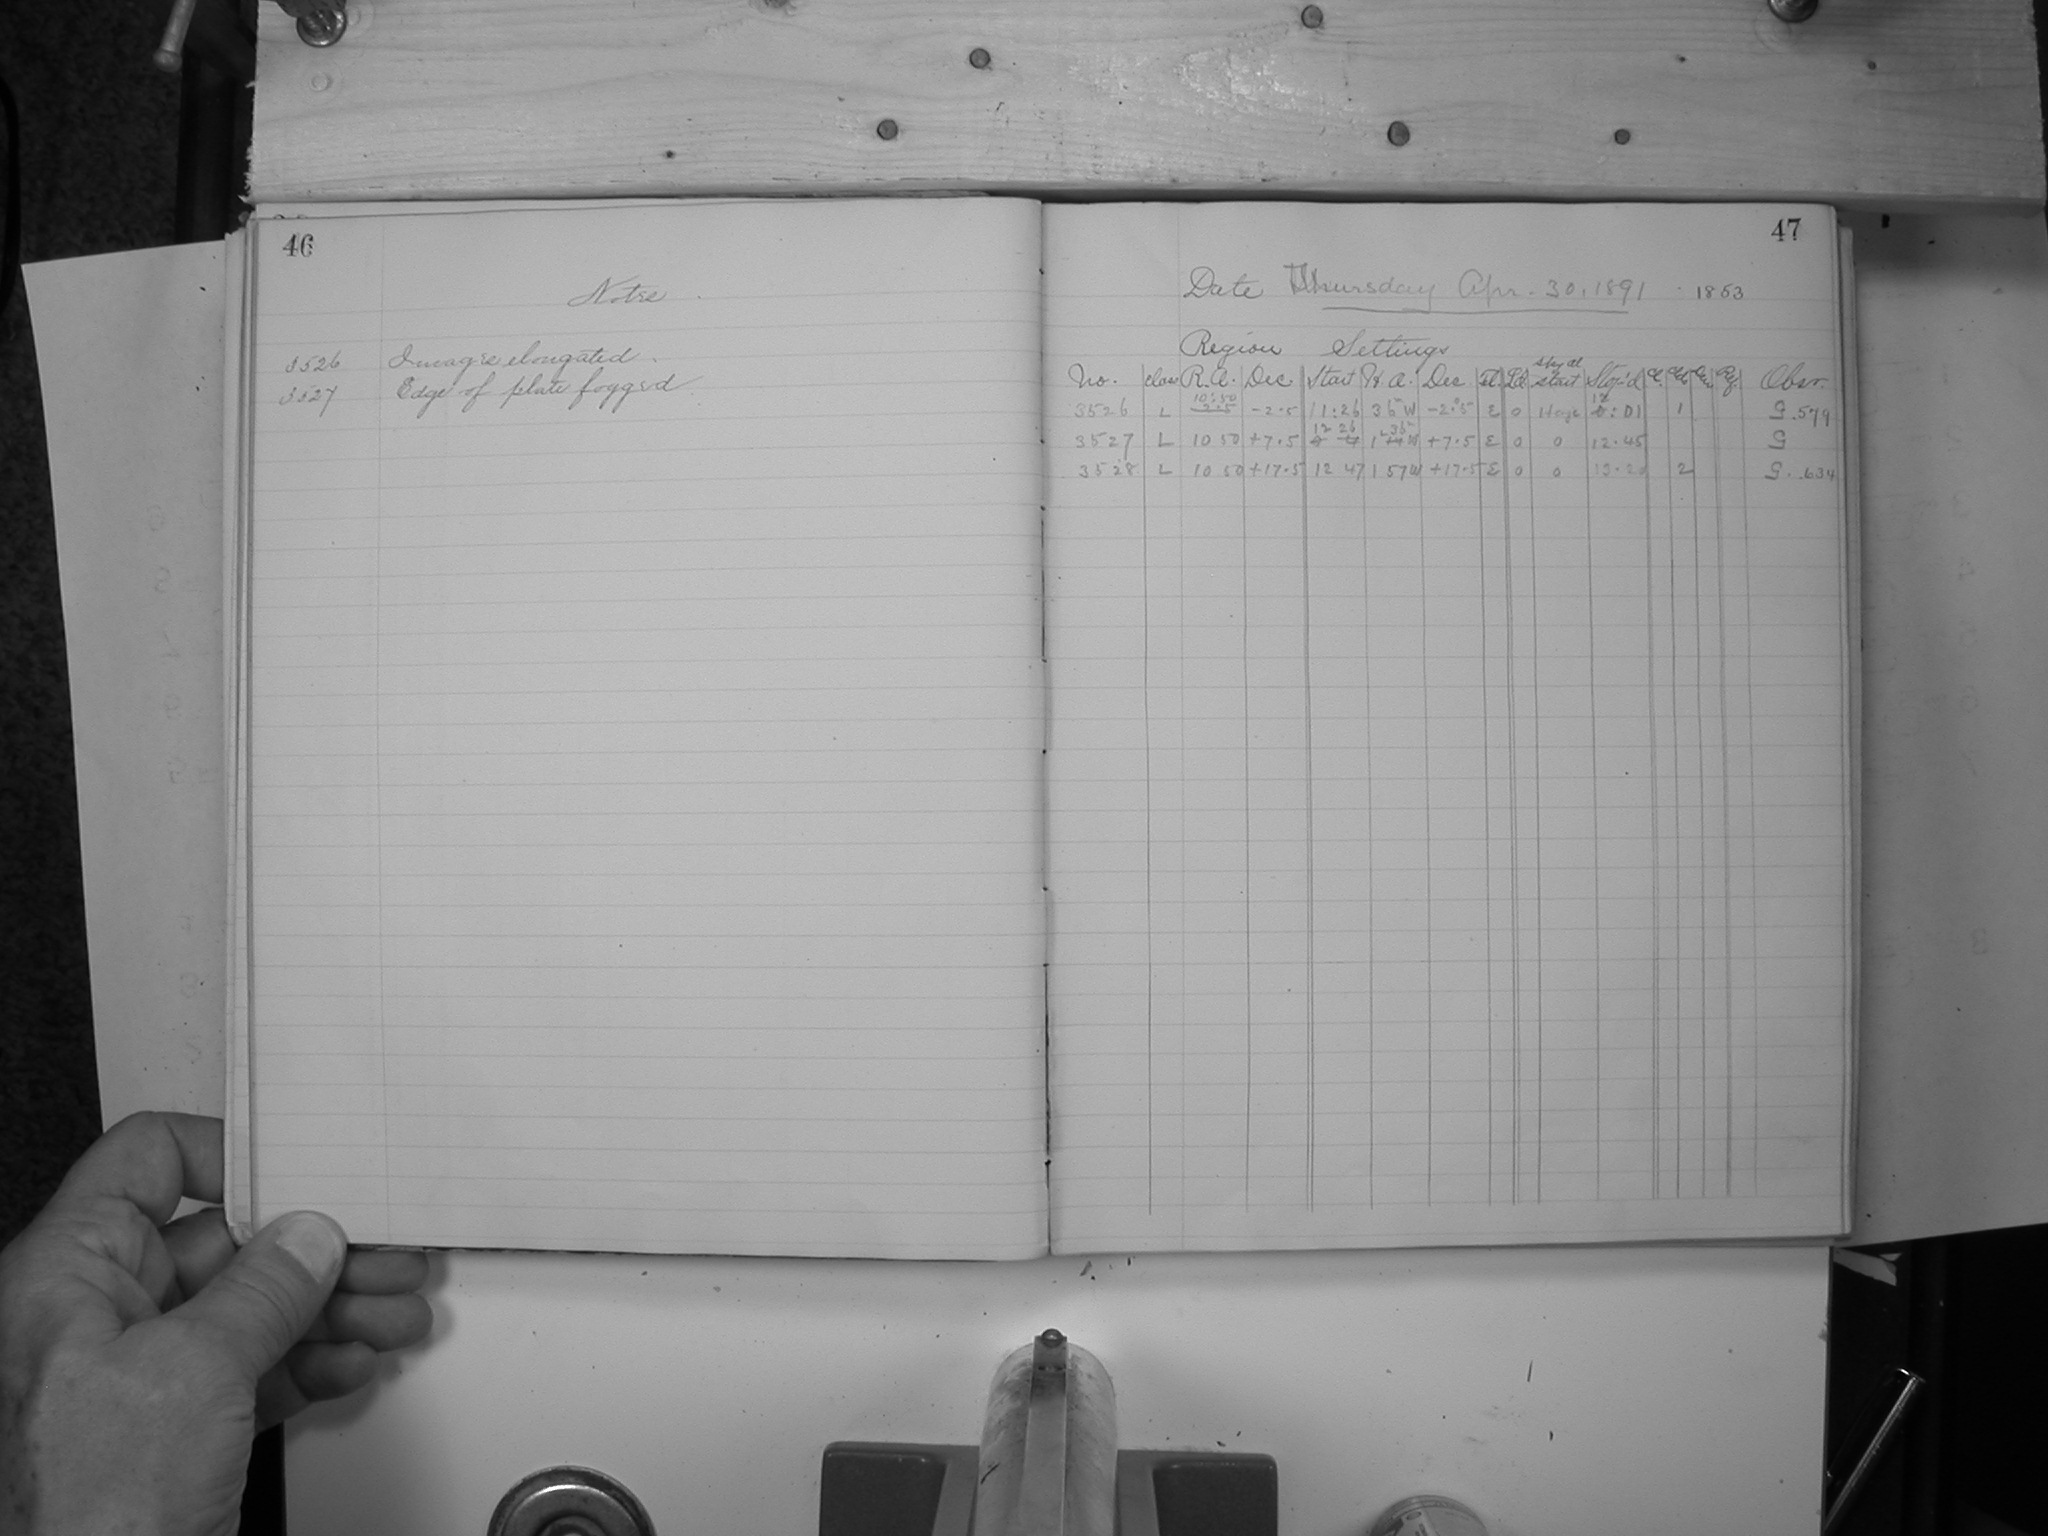 46
Notes
3526 Images elongated.
3527 Edge of plate fogged
47
Date Thursday Apr. 30, 1891 1853
Region Settings
No. Class R.A. Dec. Start H.A. Dec. Ld. Sky at start Stop'd Obsr.
3526 L 10:50 -2.5 11:26 36m W -2.5 E 0 Haze 12:01 1 G .579
3527 L 10 50 +7.5 12 26 1 36 W +7.5 E 0 0 12.45 G
3528 L 10 50 +17.5 12 47 1 57 W +17.5 E 0 0 13.20 2 G. .634